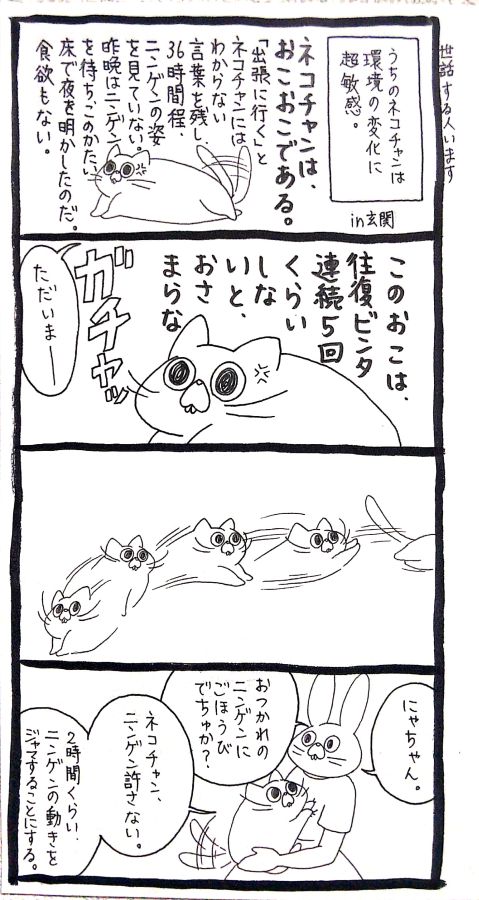 世話する人います
うちのネコチャンは
環境の変化に
超敏感。
in玄関
ネコチャンは、
おこおこである。
「出張に行く」と
ネコチャンには
わからない
言葉を残し、
36時間程、
ニンゲンの姿
を見ていない。
昨晩はニンゲン
を待ちこのかたい
床で夜を明かしたのだ。
食欲もない。
このおこは、
往復ビンタ
連続5回
くらい
しな
いと、
おさ
まらな
ガチャッ
ただいまー
にゃちゃん。
おつかれの
ニンゲンに
ごほうび
でちゅか?
ネコチャン、
ニンゲン許さない。
2時間くらい
ニンゲンの動きを
ジャマすることにする。